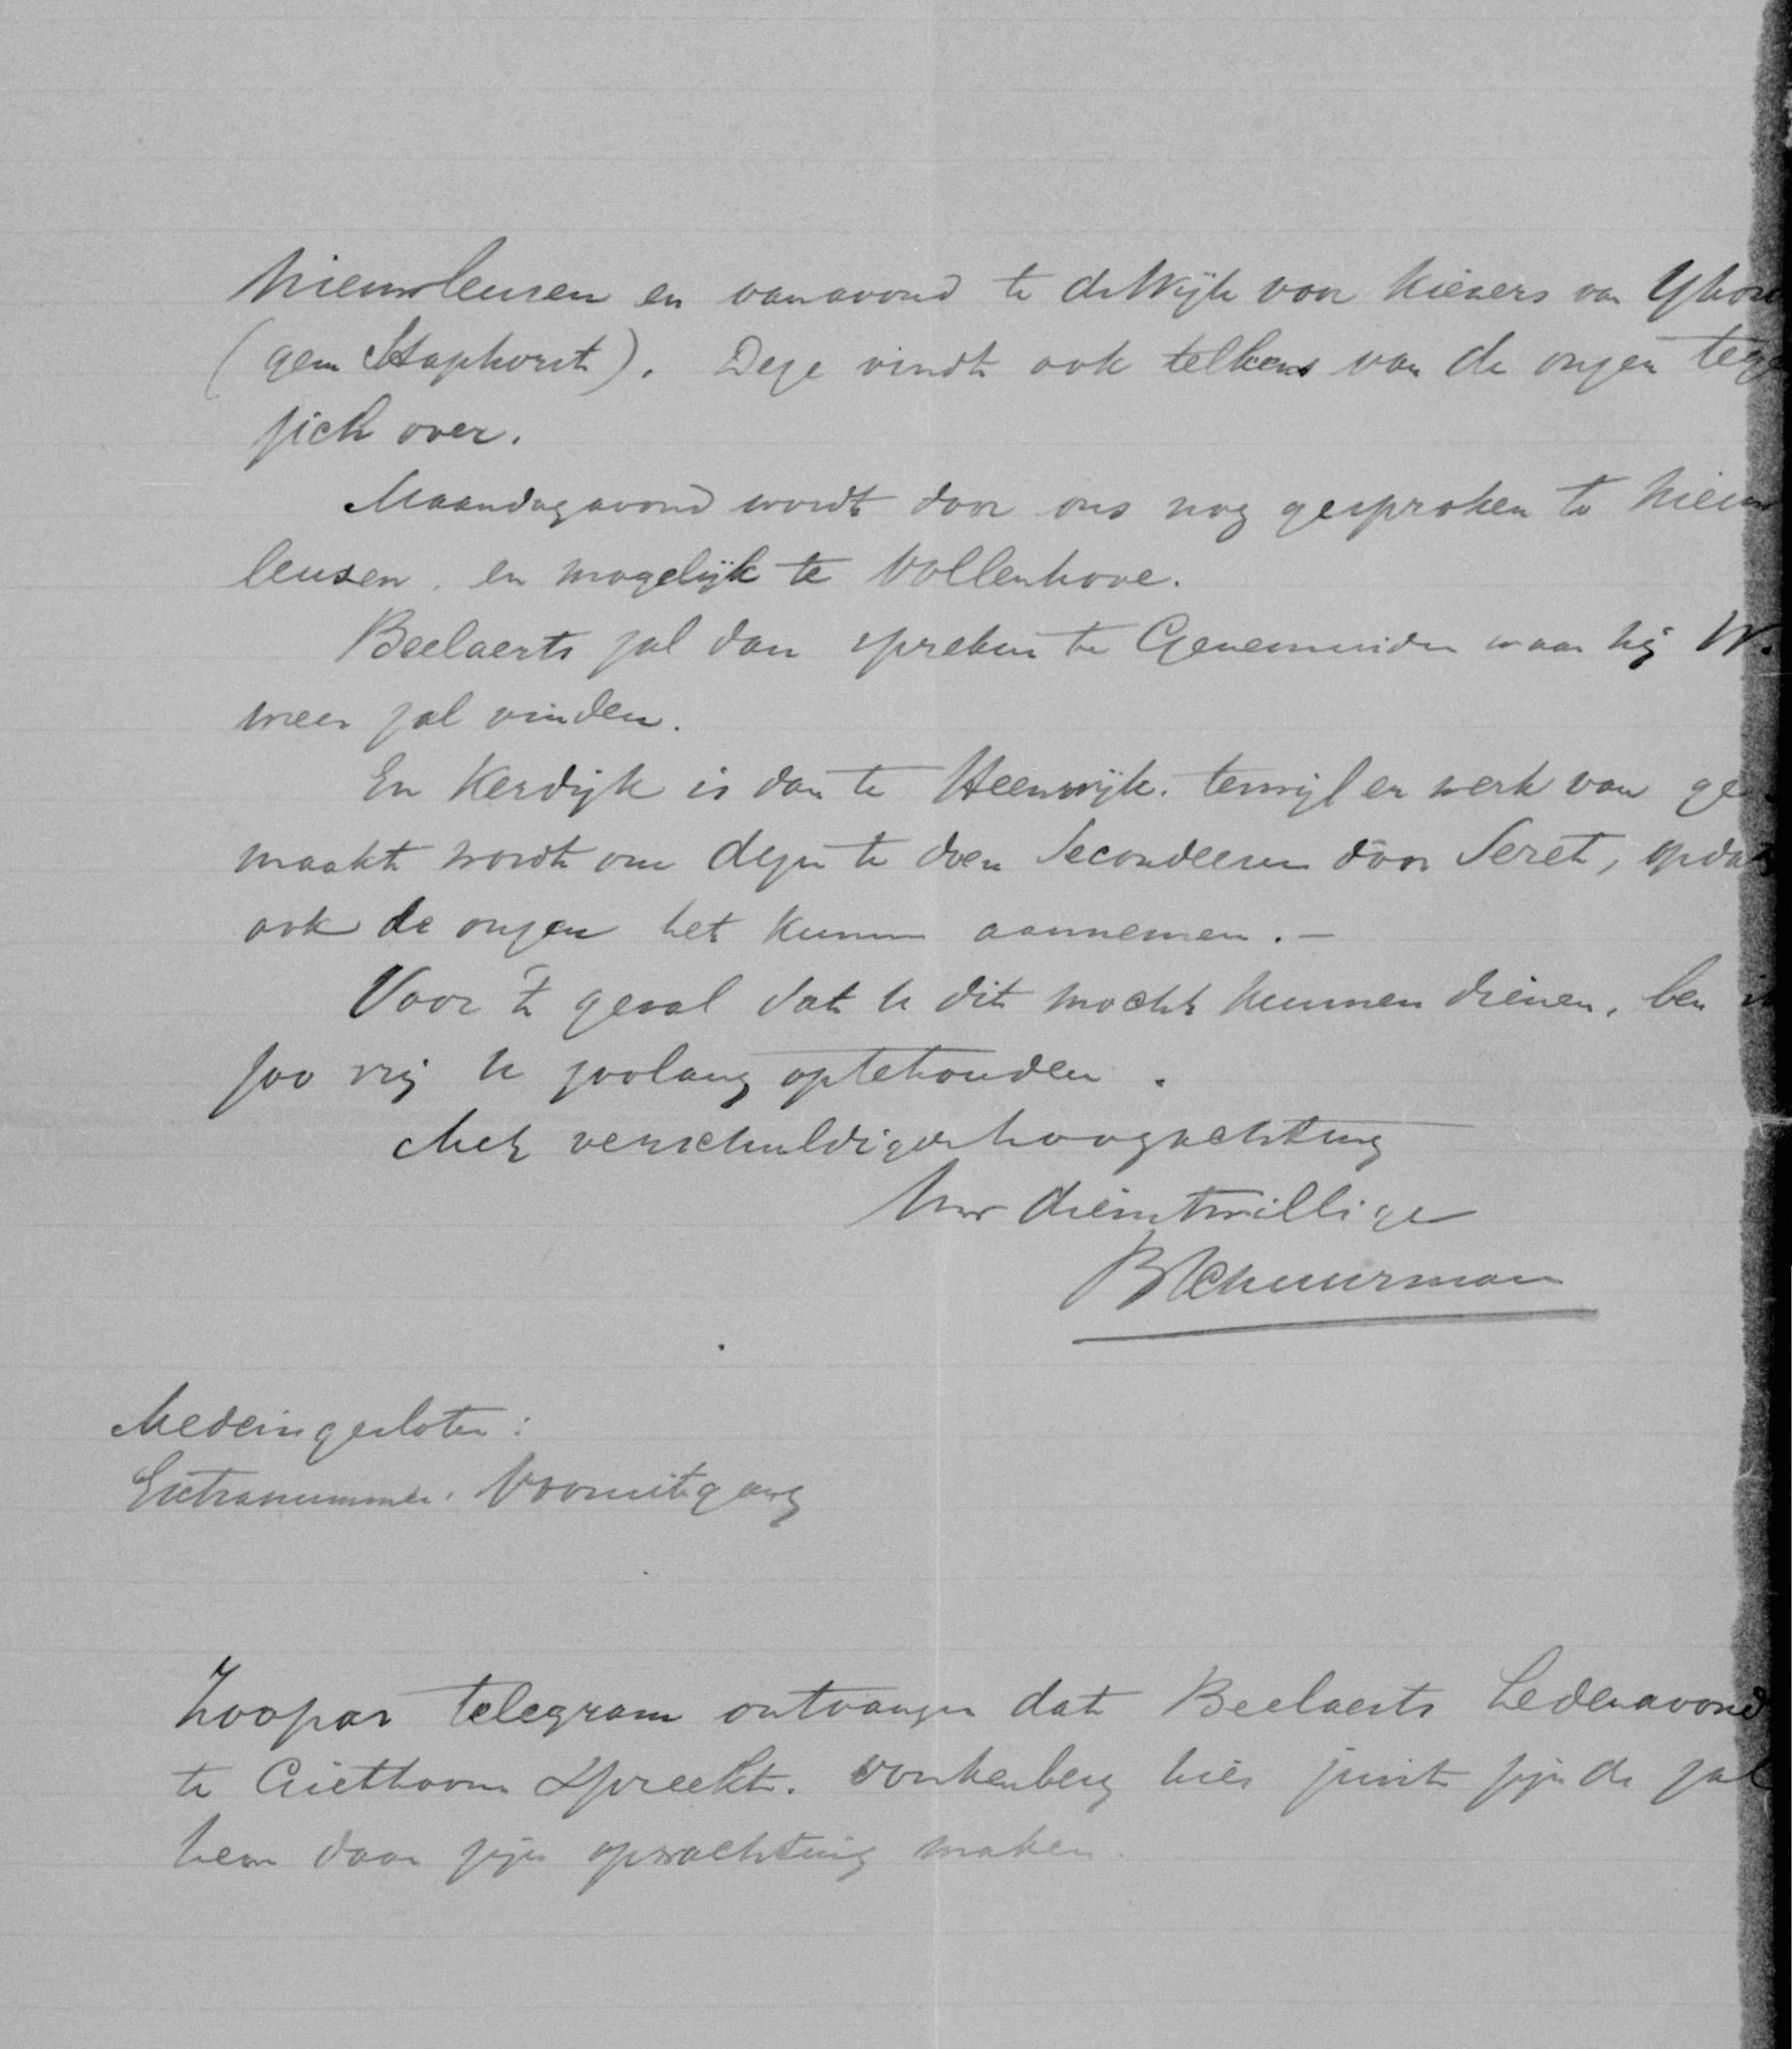 Nieuwleusen en vanavond te de Wijk voor kiezers van Yhor
(gem Staphorst). Deze vindt ook telkens van de onzen tege
zich over.
Maandagavond wordt door ons nog gesproken te Nieuw
leusen, en mogelijk te Vollenhove.
Beelaerts zal dan spreken te Genemuiden waar hij W.
meer zal vinden.
En Kerdijk is dan te Steenwijk. terwijl er werk van ge
maakt wordt om dezen te doen Secondeeren door Seret, opdat
ook de onzen het kunnen aannemen. —
Voor 't geval dat U dit mocht kunnen dienen, ben i
zoo vrij U zoolang optehouden.
Met verschuldigde hoogachting
Uw dienstwillige
BSchuurman
Medeingesloten:
Extranummer. Vooruitgang
Zoopas telegram ontvangen dat Beelaerts hedenavond
te Giethoorn Spreekt. Vonkenberg hier juist zijnde zal
hem daar zijn opwachting maken.